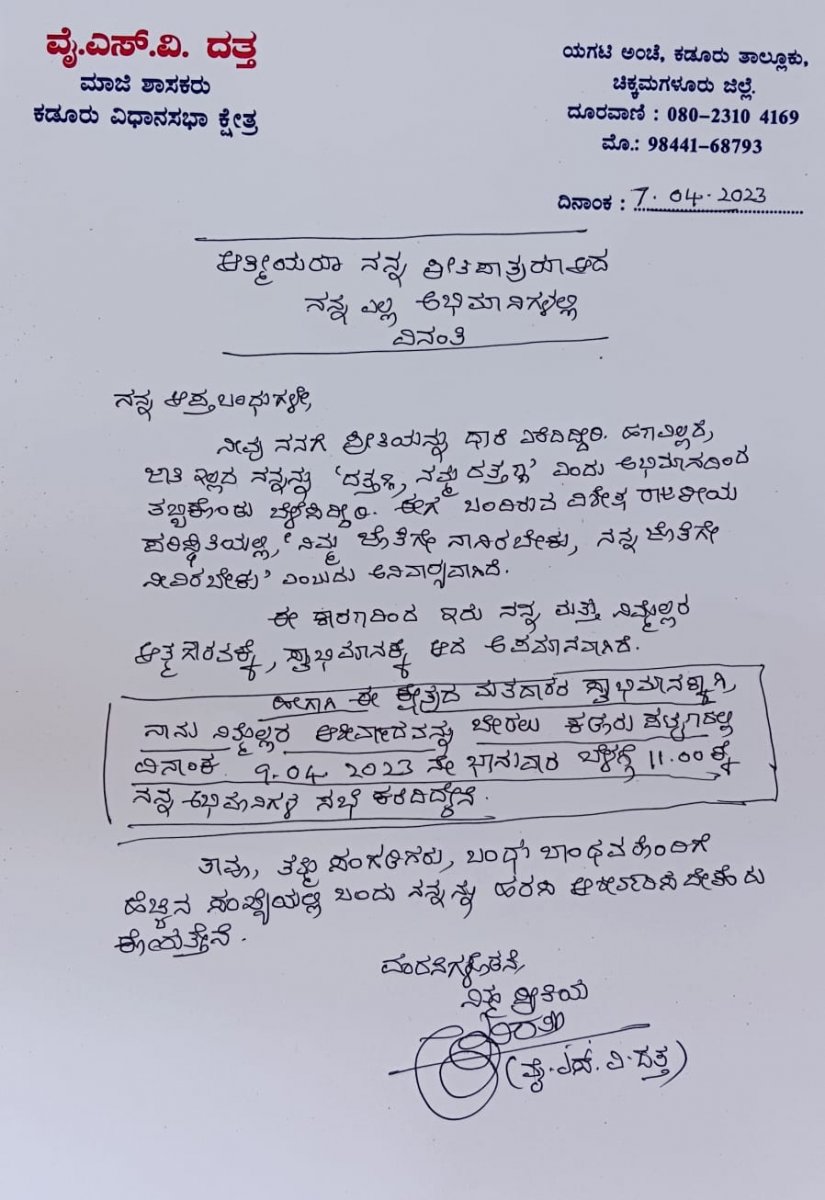 ವೈ.ಎಸ್.ವಿ. ದತ್ತ
ಮಾಜಿ ಶಾಸಕರು
ಕಡೂರು ವಿಧಾನಸಭಾ ಕ್ಷೇತ್ರ
ಯಗಟಿ ಅಂಚೆ, ಕಡೂರು ತಾಲ್ಲೂಕು,
ಚಿಕ್ಕಮಗಳೂರು ಜಿಲ್ಲೆ.
ದೂರವಾಣಿ : 080-2310 4169
ಮೊ.: 98441-68793
ದಿನಾಂಕ : 7.04.2023
ಆತ್ಮೀಯರೂ ನನ್ನ ಪ್ರೀತಿಪಾತ್ರರೂ ಆದ
ನನ್ನ ಎಲ್ಲ ಅಭಿಮಾನಿಗಳಲ್ಲಿ
ವಿನಂತಿ
ನನ್ನ ಆಪ್ತಬಂಧುಗಳೇ,
ನೀವು ನನಗೆ ಪ್ರೀತಿಯನ್ನು ಧಾರೆ ಎರೆದಿದ್ದೀರಿ. ಹಣವಿಲ್ಲದ,
ಜಾತಿ ಇಲ್ಲದ ನನ್ನನ್ನು 'ದತ್ತಣ್ಣ, ನಮ್ಮ ದತ್ತಣ್ಣ' ಎಂದು ಅಭಿಮಾನದಿಂದ
ತಬ್ಬಿಕೊಂಡು ಬೆಳೆಸಿದ್ದೀರಿ. ಈಗ ಬಂದಿರುವ ವಿಶೇಷ ರಾಜಕೀಯ
ಪರಿಸ್ಥಿತಿಯಲ್ಲಿ, 'ನಿಮ್ಮ ಜೊತೆಗೇ ನಾನಿರಬೇಕು, ನನ್ನ ಜೊತೆಗೇ
ನೀವಿರಬೇಕು' ಎಂಬುದು ಅನಿವಾರ್ಯವಾಗಿದೆ.
ಈ ಕಾರಣದಿಂದ ಇದು ನನ್ನ ಮತ್ತು ನಿಮ್ಮೆಲ್ಲರ
ಆತ್ಮಗೌರವಕ್ಕೆ, ಸ್ವಾಭಿಮಾನಕ್ಕೆ ಆದ ಅಪಮಾನವಾಗಿದೆ.
ಹೀಗಾಗಿ ಈ ಕ್ಷೇತ್ರದ ಮತದಾರರ ಸ್ವಾಭಿಮಾನಕ್ಕಾಗಿ,
ನಾನು ನಿಮ್ಮೆಲ್ಲರ ಆಶೀರ್ವಾದವನ್ನು ಬೇಡಲು ಕಡೂರು ಪಟ್ಟಣದಲ್ಲಿ
ದಿನಾಂಕ 9.04 2023 ನೇ ಭಾನುವಾರ ಬೆಳಗ್ಗೆ 11.00ಕ್ಕೆ
ನನ್ನ ಅಭಿಮಾನಿಗಳ ಸಭೆ ಕರೆದಿದ್ದೇನೆ.
ತಾವು, ತಮ್ಮ ಸಂಗಡಿಗರು, ಬಂಧು ಬಾಂಧವರೊಂದಿಗೆ
ಹೆಚ್ಚಿನ ಸಂಖ್ಯೆಯಲ್ಲಿ ಬಂದು ನನ್ನನ್ನು ಹರಸಿ ಆಶೀರ್ವದಿಸಬೇಕೆಂದು
ಕೋರುತ್ತೇನೆ.
ವಂದನೆಗಳೊಡನೆ,
ನಿಮ್ಮ ಪ್ರೀತಿಯ
(ವೈ.ಎಸ್.ವಿ.ದತ್ತ)